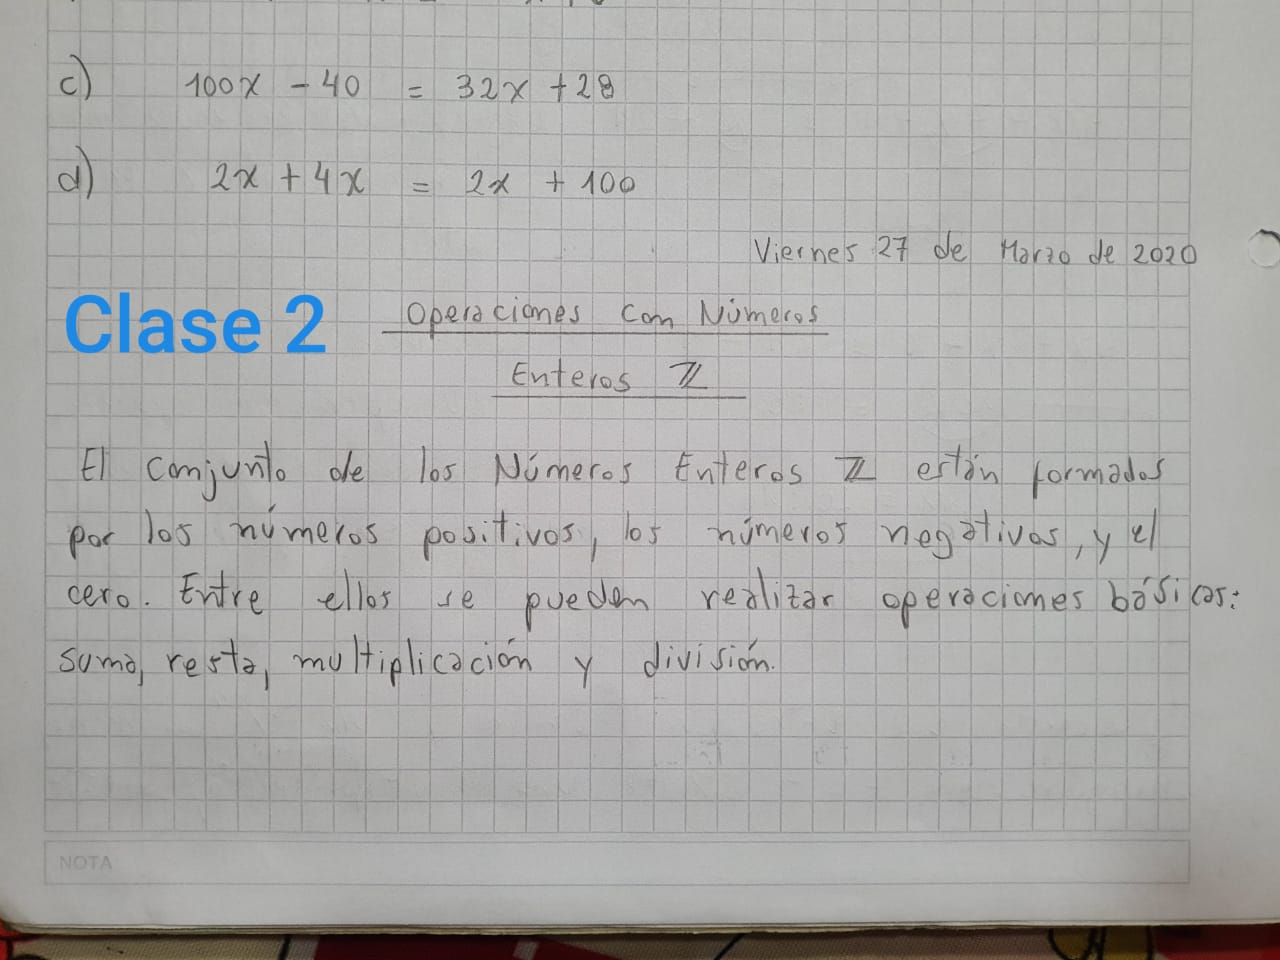 c) 100x - 40 = 32x + 28
d) 2x + 4x = 2x + 100
Viernes 27 de Marzo de 2020
Clase 2
Operaciones con Números
Enteros ℤ
El conjunto de los Números Enteros ℤ están formados
por los números positivos, los números negativos, y el
cero. Entre ellos se pueden realizar operaciones básicas:
suma, resta, multiplicación y división.
NOTA